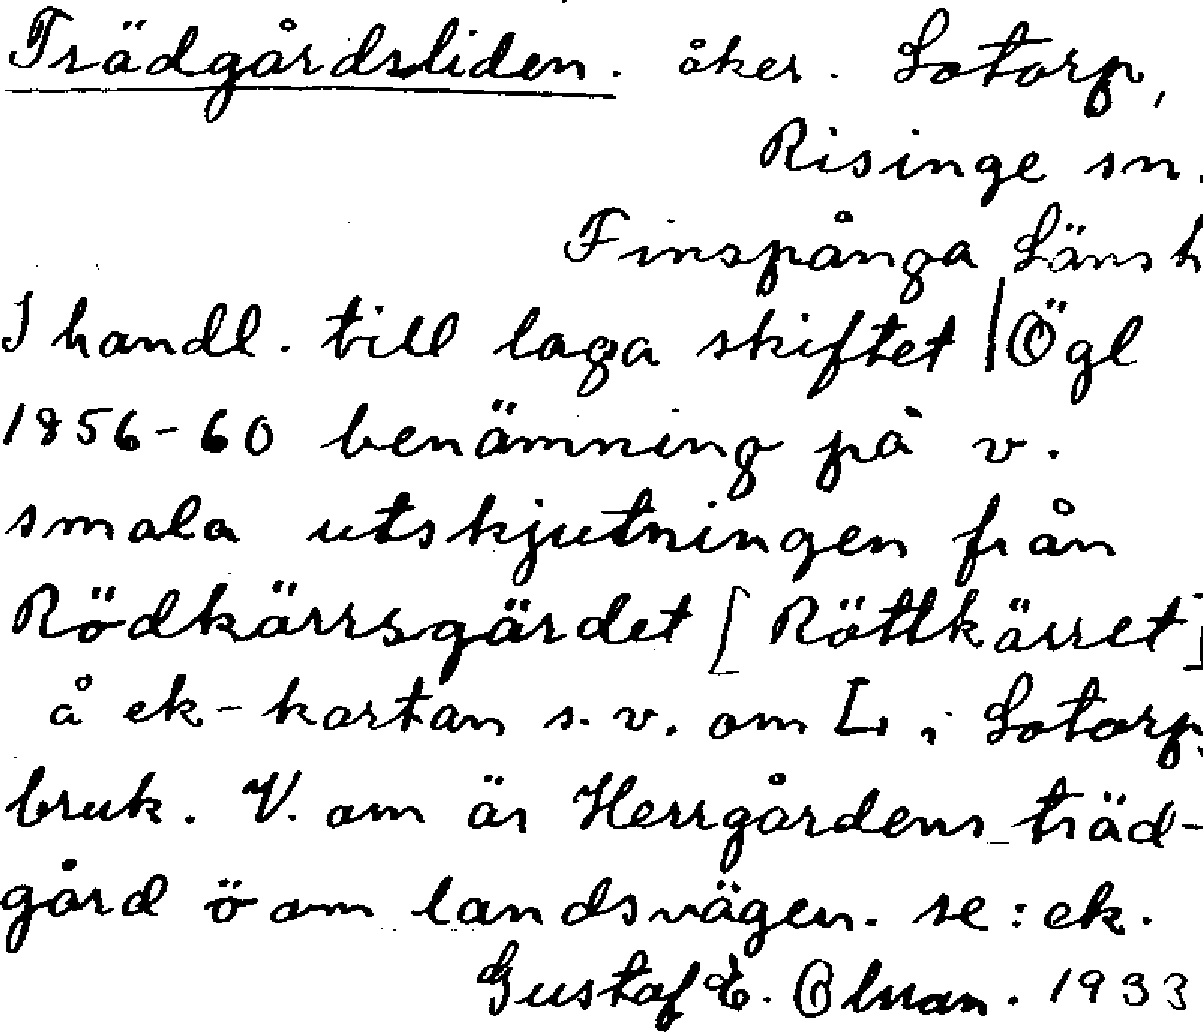 Trädgårdsliden. åker. Lotorp,
Risinge sn.
Finspånga Länsh
I handl. till laga skiftet | Ögl
1856-60 benämning på v.
smala utskjutningen från
Rödkärrsgärdet [Röttkärret]
å ek-kartan s.v. om L i Lotorp,
bruk. V. om är Herrgårdens träd-
gård ö om landsvägen. se: ek.
Gustaf E. 1933